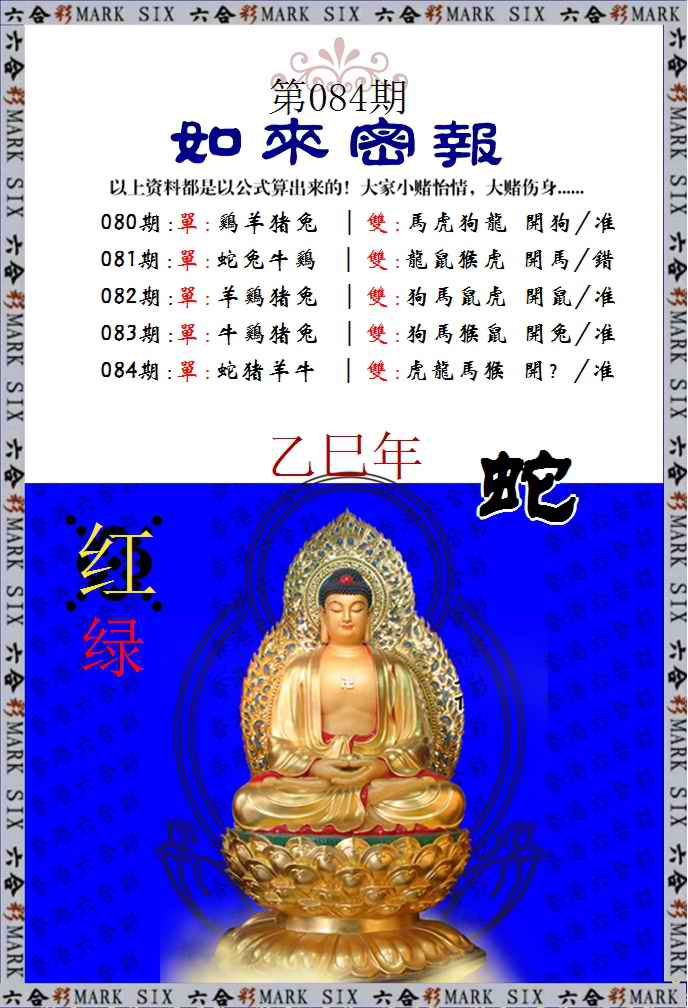 六合彩MARK SIX 六合彩MARK SIX 六合彩MARK SIX 六合彩MARK SIX 六合彩MARK SIX
第084期
如來密報
以上资料都是以公式算出来的！大家小赌怡情，大赌伤身......
080期:單:鷄羊猪兔 |雙:馬虎狗龍 開狗/准
081期:單:蛇兔牛鷄 |雙:龍鼠猴虎 開馬/錯
082期:單:羊鷄猪兔 |雙:狗馬鼠虎 開鼠/准
083期:單:牛鷄猪兔 |雙:狗馬猴鼠 開兔/准
084期:單:蛇猪羊牛 |雙:虎龍馬猴 開？/准
乙巳年
蛇
红
绿
六合彩MARK SIX 六合彩MARK SIX 六合彩MARK SIX 六合彩MARK SIX 六合彩MARK SIX